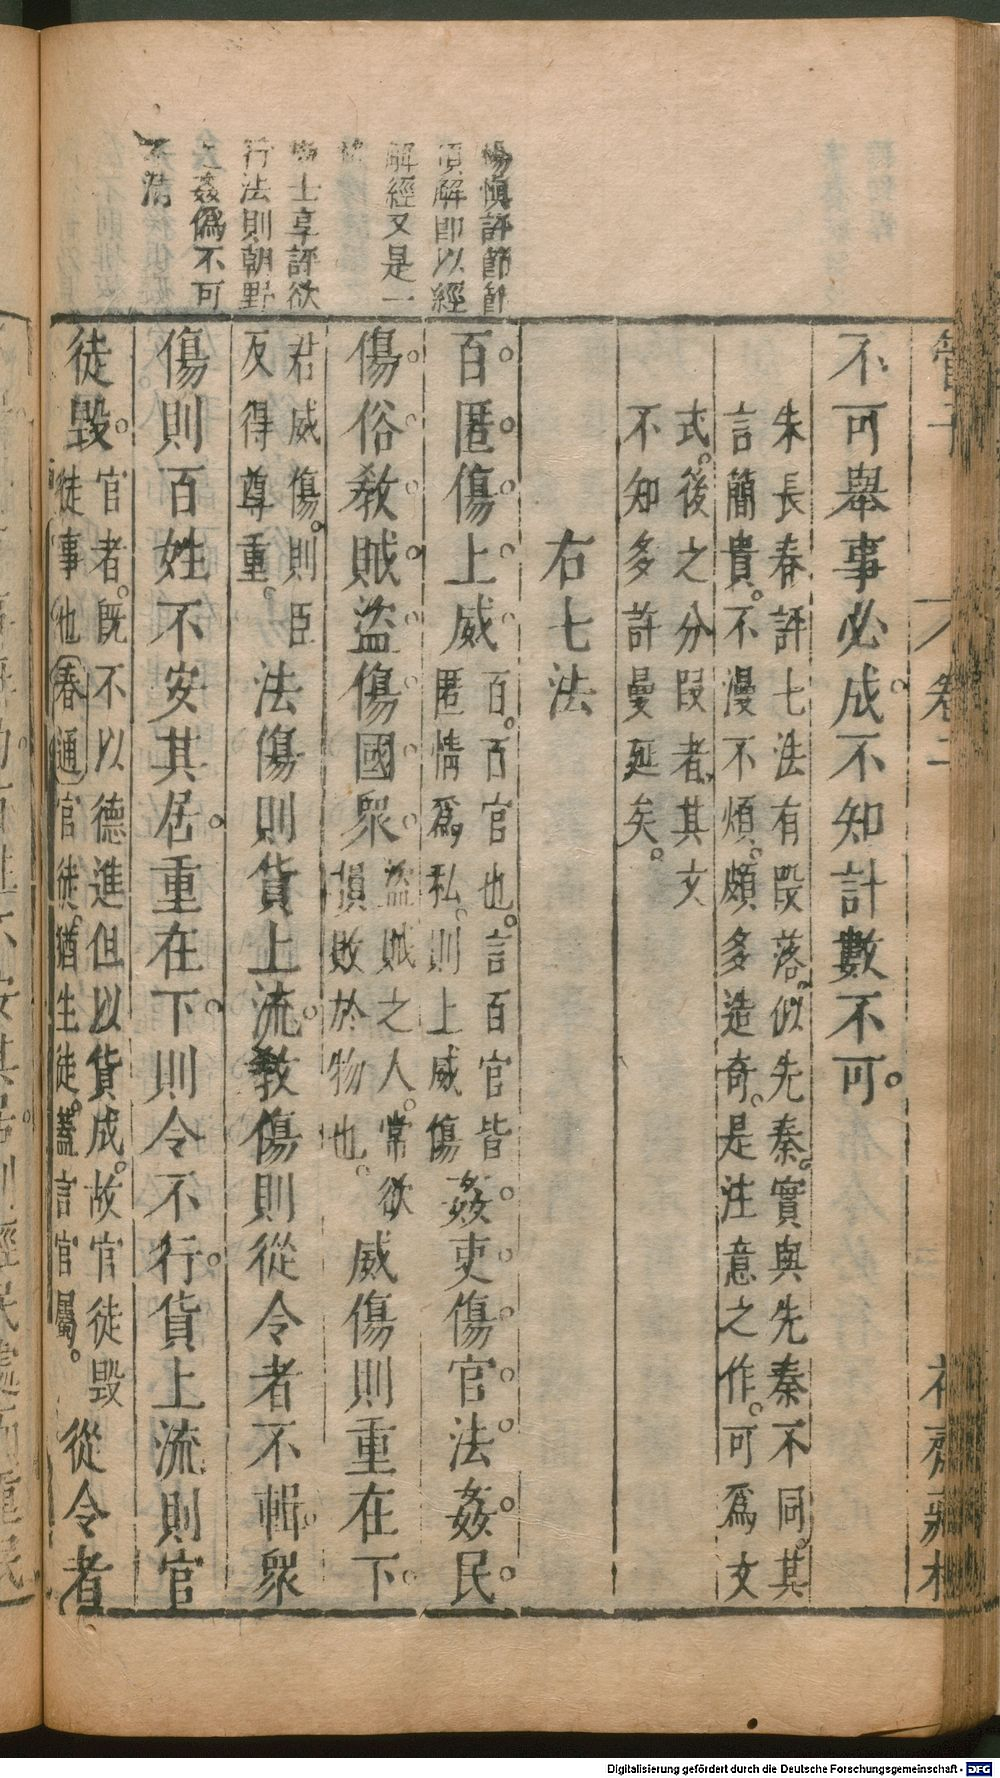 管子 卷二 花齋藏板
不可舉事必成不知計數不可
朱長春評七法有段落似先秦實與先秦不同其
言簡貴不漫不煩頗多造奇是注意之作可爲文
式後之分段者其文
不知多許曼延矣
右七法
百匿傷上威
百百官也言百官皆
匿情爲私則上威傷
姦吏傷官法姦民
傷俗敎賊盜傷國衆
盜賊之人常欲
損敗於物也
威傷則重在下
君威傷則臣
反得尊重
法傷則貨上流敎傷則從令者不輯衆
傷則百姓不安其居重在下則令不行貨上流則官
徒毀
官者既不以德進但以貨成故官徒毀
徒事也春通官徒猶生徒蓋言官屬
從令者
楊愼評節節
頂解即以經
解經又是一
士享評欲
行法則朝野
姦僞不可
不清
Digitalisierung gefördert durch die Deutsche Forschungsgemeinschaft - DFG